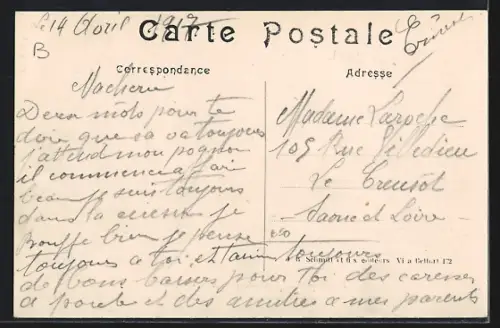 Le 14 Avril 1917
B
Carte Postale
Correspondance
Adresse
Ma chere
Deux mots pour te
dire que sa va toujours
j'attend mon pognon
il commence a fair
beau je suis toujours
dans la cuisine je
bouffe bien je pense
toujours a toi et t'aime toujours
de bons baisers pour toi des caresses
a et des amities a mes parents
Madame Laroche
105 Rue Villedieu
Le Creusot
Saone et Loire